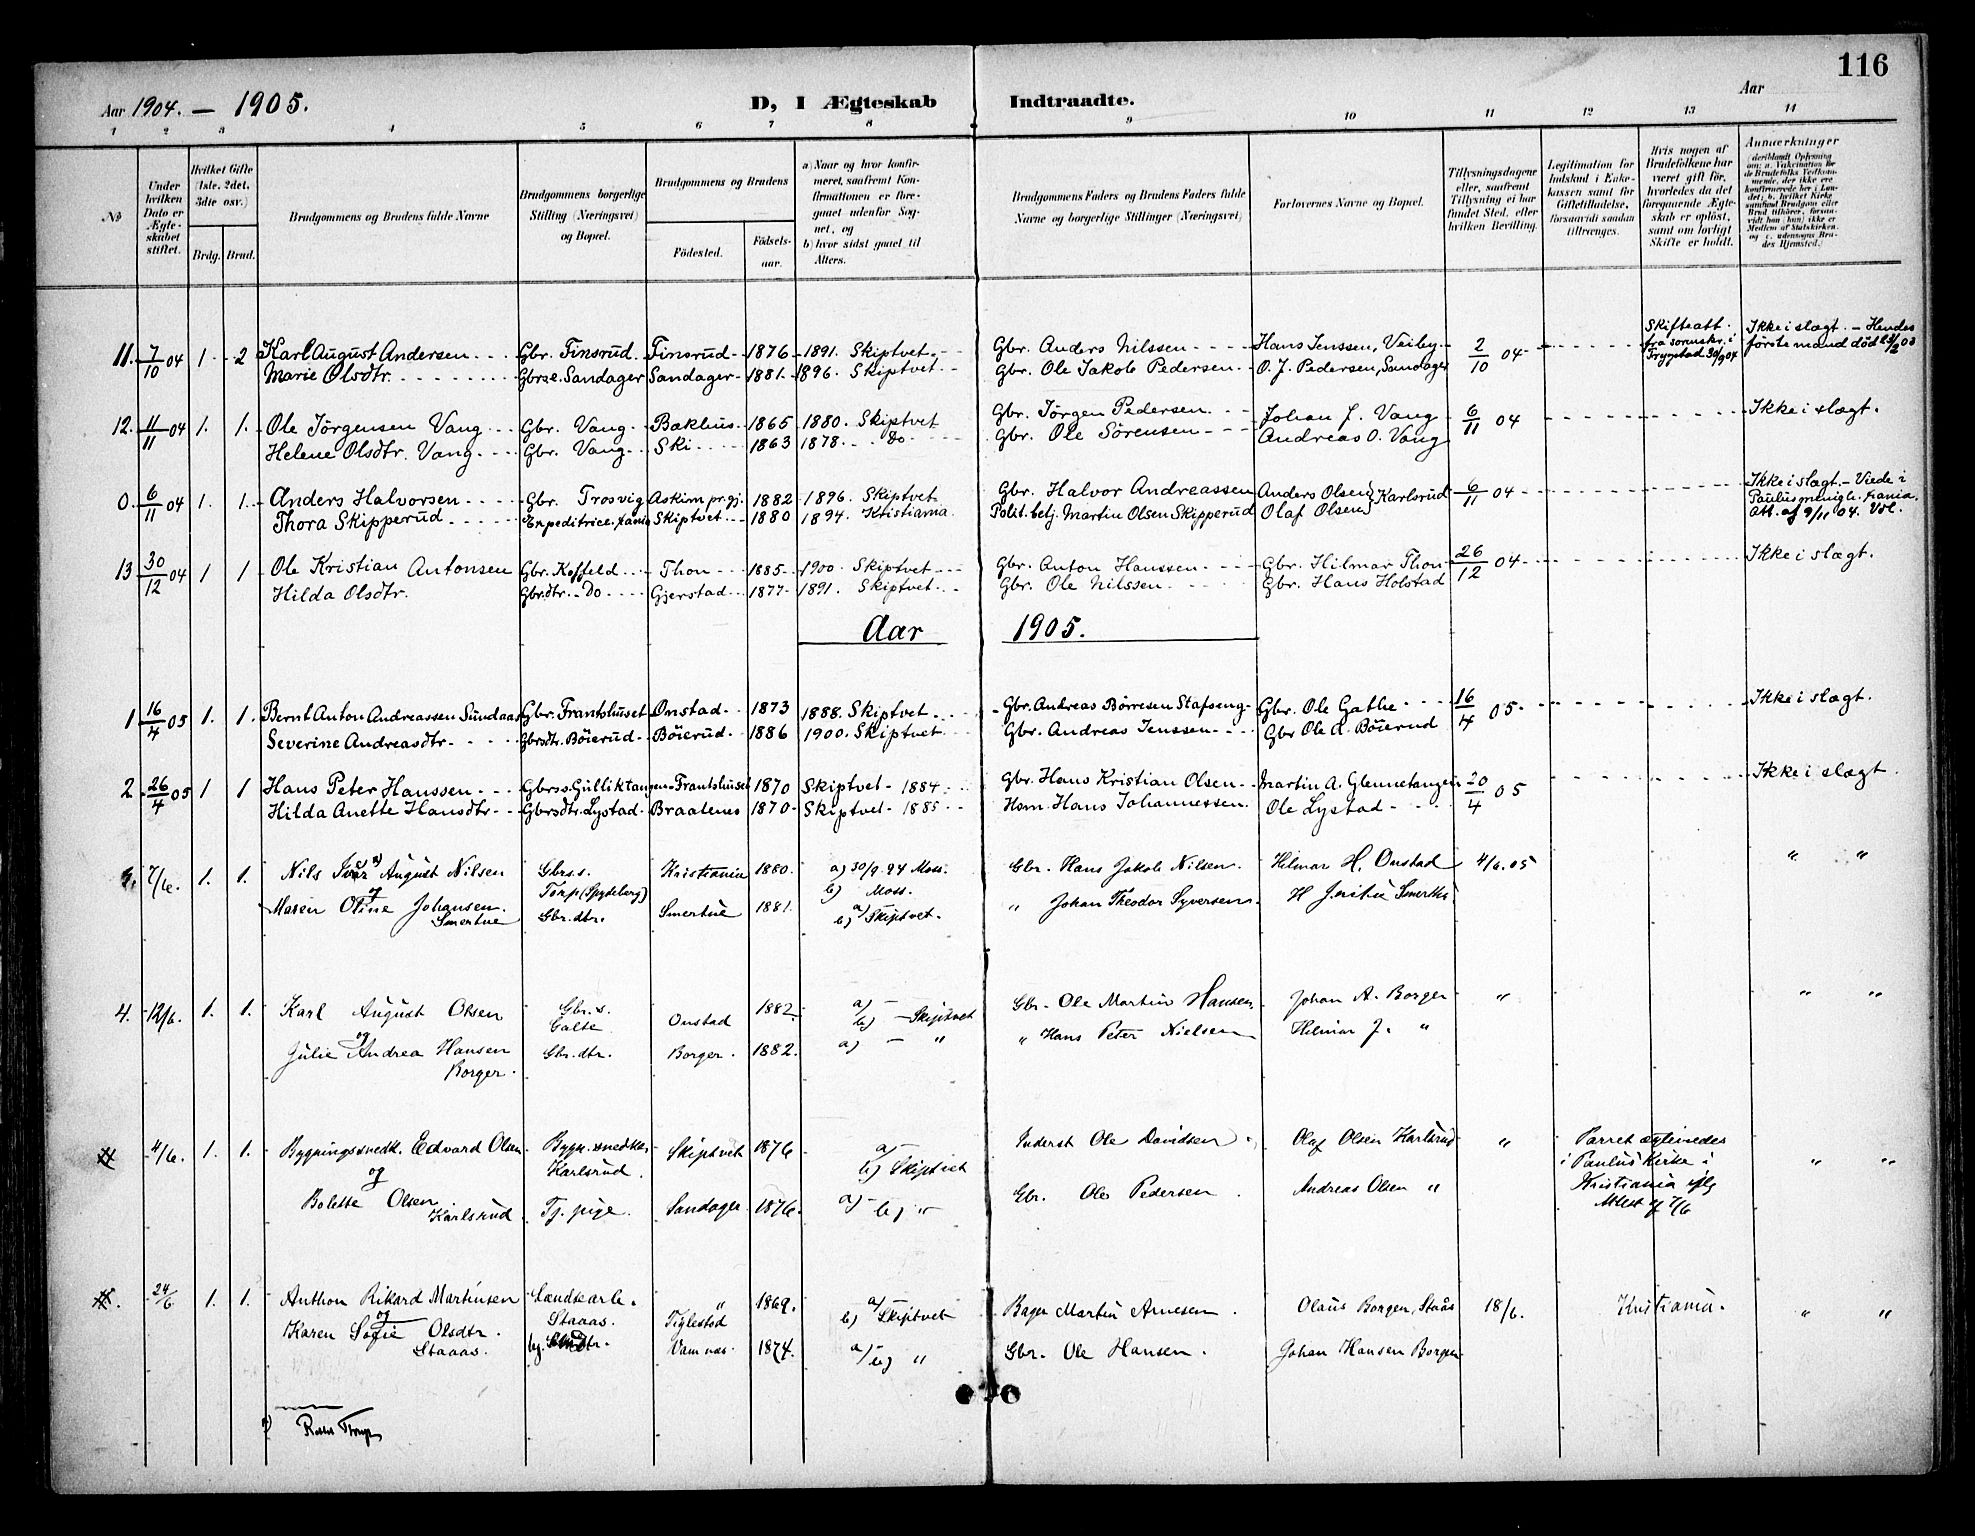 116
Aar 1904. — 1905. D, 1 Ægteskab Indtraadte. Aar
1 2 3 4 5 6 7 8 9 10 11 12 13 14
No
Under hvilken Dato er Ægteskabet stiftet.
Hvilket Gifte (1ste, 2det, 3dte osv.)
Brdg. Brud.
Brudgommens og Brudens fulde Navne
Brudgommens borgerlige Stilling (Næringsvei) og Bopæl.
Brudgommens og Brudens
Fødested. Fødselsaar.
a) Naar og hvor konfirmeret, saafremt Konfirmationen er foregaaet udenfor Sognet, og
b) hvor sidst gaaet til Alters.
Brudgommens Faders og Brudens Faders fulde Navne og borgerlige Stillinger (Næringsvei)
Forlovernes Navne og Bopæl.
Tillysningsdagene eller, saafremt Tillysning ei har fundet Sted, efter hvilken Bevilling.
Legitimation for Indskud i Enkekassen samt for Giftetilladelse, forsaavidt saadan tiltrænges.
Hvis nogen af Brudefolkene har været gift før, hvorledes da det foregaaende Ægteskab er opløst, samt om lovligt Skifte er holdt.
Anmærkninger
11. 7/10 04 1 2 Karl August Andersen Gbr. Finsrud. Finsrud 1876 1891. Skiptvet. Gbr. Anders Nilssen Hans Jenssen, Vaiby 2/10 04 Skifteatt. fra sorenskr. i Trygstad 30/9 04 Ikke i slægt. — Hendes første mand død
Marie Olsdtr. Gbrse. Sandager Sandager 1881 1896. Skiptvet Gbr. Ole Jakob Pedersen O. J. Pedersen, Sandager
12. 11/11 04 1. 1. Ole Jörgensen Vang Gbr. Vang Bakhus 1865 1880. Skiptvet Gbr. Jörgen Pedersen Johan J. Vang 6/11 04 Ikke i slægt.
Helene Olsdtr. Vang Gbr. Vang Ski 1863 1878. Do Gbr. Ole Sörensen Andreas O. Vang
0. 6/11 04 1. 1. Anders Halvorsen Gbr. Trosvig Askim pr.gj. 1882 1896. Skiptvet Gbr. Halvor Andreassen Anders Olsen } Karlsrud 6/11 04 Ikke i slægt. — Viede i
Thora Skipperud Expeditrice, Skiptvet 1880 1894. Kristiania Martin Olsen Skipperud Olaf Olsen Paulus menigh.
Att. af 9/11 04.
13 30/12 04 1 1 Ole Kristian Antonsen Gbr. Koffeld Thon 1885 1900. Skiptvet Gbr. Anton Hanssen Gbr. Hilmar Thon 26/12 04 Ikke i slægt.
Hilda Olsdtr. Gbr.dtr. Do Gjerstad 1877 1891. Skiptvet Gbr. Ole Nilssen Gbr. Hans Holstad
Aar 1905.
1 16/4 05 1. 1. Bernt Anton Andreassen Sundaas Gbr. Frantshuset Onstad 1873 1888. Skiptvet Gbr. Andreas Börresen Stafseng Gbr. Ole Gathe 16/4 05 Ikke i slægt.
Severine Andreasdtr. Gbrsdtr. Böierud Böierud 1886 1900. Skiptvet Gbr. Andreas Jenssen Gbr Ole A. Böierud
2 26/4 05 1 1 Hans Peter Hanssen Gbrss. Gulliktangen Frantshuset 1870 Skiptvet 1884 Gbr. Hans Kristian Olsen Martin A. Glennetangen 20/4 05 Ikke i slægt
Hilda Anette Hansdtr Gbrsdtr. Lystad Braatenes 1870 Skiptvet 1885 Hsm. Hans Johannessen Ole Lystad
3. 7/6. 1. 1. Nils Ivar August Nilsen Gbr.s. Kristiania 1880. a) 30/9 94 Moss. Gbr. Hans Jakob Nilsen. Hilmar H. Onstad 4/6. 05 " "
og Torp (Spydeberg) b) Moss.
Maren Oline Johansen. Gbr.dtr. Smertue 1881. a) " Johan Theodor Syversen
Smertue b) Skiptvet.
4. 12/6. 1. 1. Karl August Olsen Gbr.s. Onstad 1882. a) — Gbr. Ole Martin Hansen. Johan A. Borger " " "
og Galte b) — Skiptvet
Julie Andrea Hansen Gbr.dtr. Borger. 1882. a) — " " Hans Peter Nielsen Hilmar J. "
Borger.
4/6. 1. 1. Bygningssnedk. Edvard Olsen Bygn.snedker Skiptvet 1876 a) Inderst Ole Davidsen Olaf Olsen Karlsrud " Parret ægteviedes
og Karlsrud. b) Skiptvet i Paulus Kirke i
Bolette Olsen Tj.pige. Sandager 1876. a) b) " Gbr. Ole Pedersen. Andreas Olsen " Kristiania iflg
Karlsrud Attest af 7/6 " "
24/6 1. 1. Anthon Rikard Martinsen Landkarb. " 1869. a) Bager Martin Arnesen. Olaus Borgen, Staås 18/6. Kristiania. " "
og Staaas. Tiglestod b) Skiptvet
Karen Sofie Olsdtr. 1874. a) b) " Gbr. Ole Hansen. Johan Hansen Borgen
Staaas.